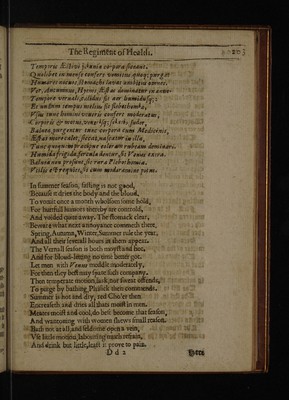 The Regiment of Health.
Temporis Æstivi jejunia corpora siccant.
Quolibet in mense confert vomitus, quoque purgat
Humores nocuos, stomachi lavat ambitus omnes.
Ver, Autumnus, Hyems, Æstas dominatur in anno:
Tempore vernali calidus fit aer humidusque:
Et nullum tempus melius fit flebothomia,
Usus tunc homini veneris confert moderatus,
Corporis & motus, ventrisque solutio, sudor,
Balnea, purgentur tunc corpora cum Medicinis,
Æstas more calet, sicca, nascatur in illa,
Tunc quoque præcipue coleram rubeam dominari.
Humida frigida fercula dentur, sit Venus extra.
Balnea non prosunt, sit rara Flebothomia.
Utilis est requies, sit cum moderamine potus.
In summer season, fasting is not good,
Because it dries the body and the blood.
To vomit once a month wholsom some hold,
For hurtfull humors thereby are controld,
And voided quite away. The stomack clear,
Beware what next annoyance commeth there.
Spring, Autumn, Winter, Summer rule the year,
And all their severall houres in them appear.
The Vernall season is both moyst and hot,
And for blood-letting no time better got.
Let men with Venus meddle moderately,
For then they best may spare such company.
Then temperate motion, lask, nor sweat offends,
To purge by bathing Physick then commends.
Summer is hot and dry, red Choler then
Encreaseth and dries all thats moist in men.
Meates moist and cool, do best become that season,
And wantoning with women shews small reason.
Bath not at all, and seldome open a vein,
Use little motion, labouring much refrain,
And drink but little, least it prove to pain.
D d 2